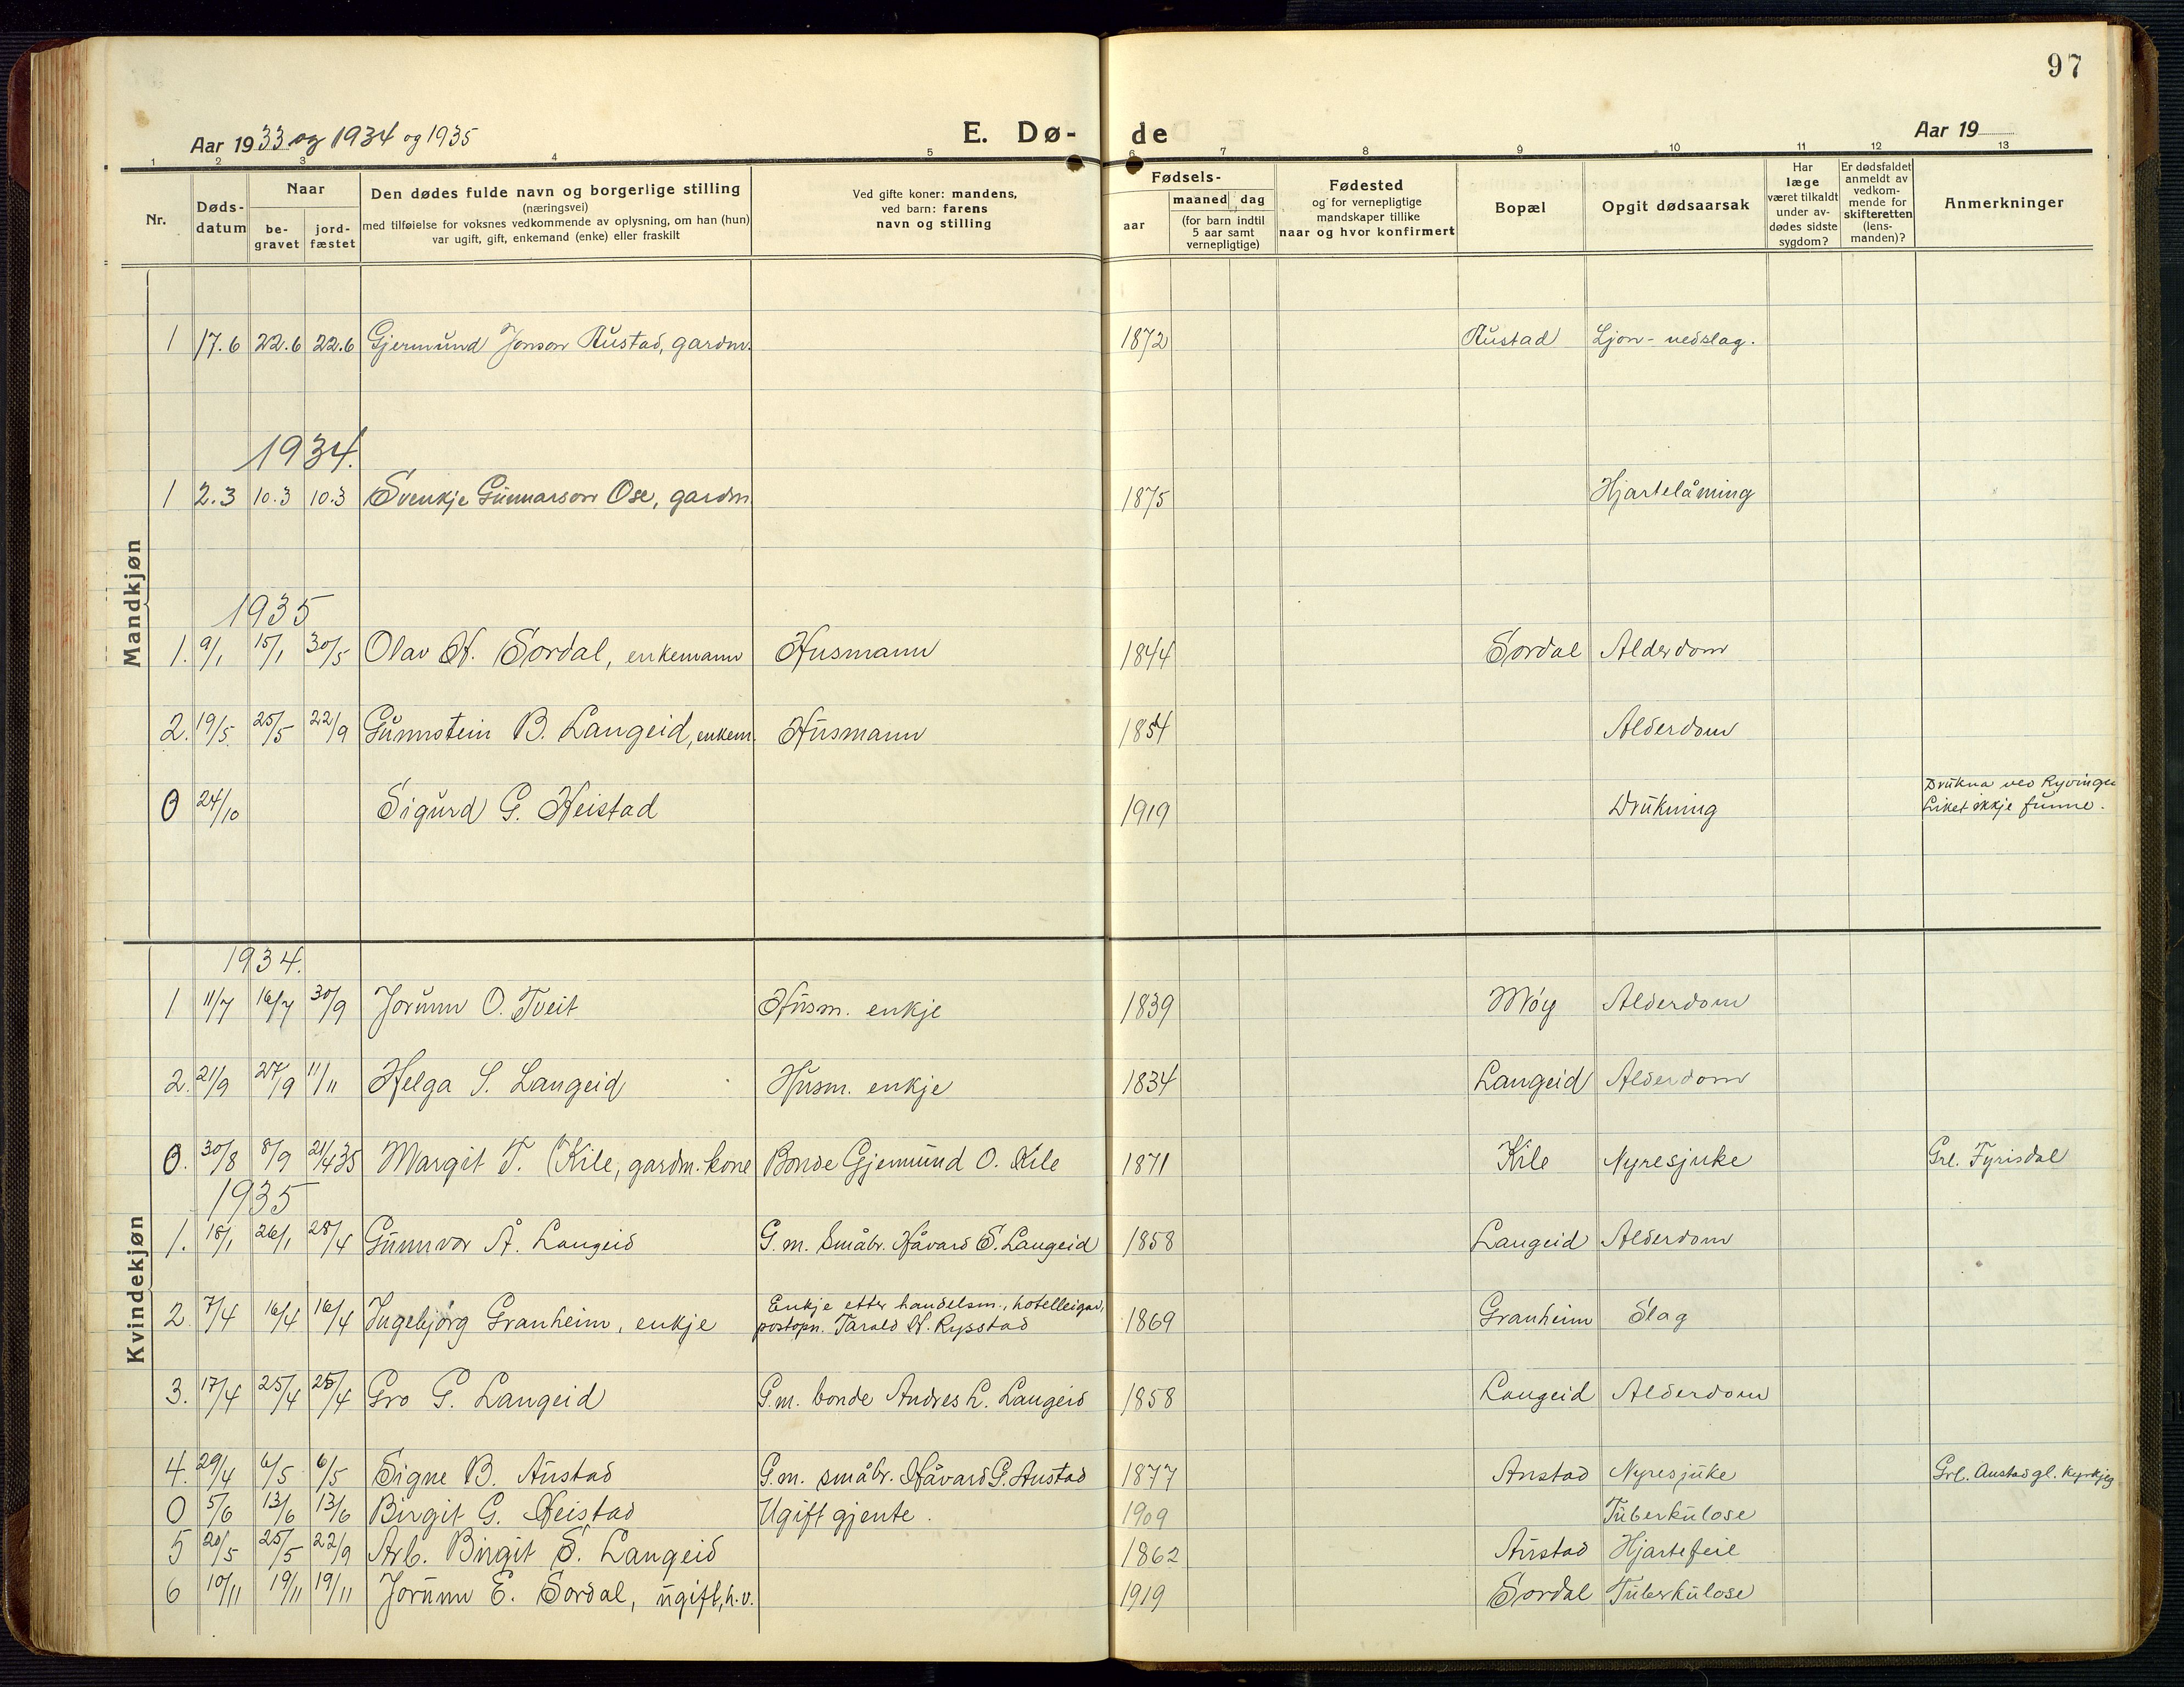 97
Aar 1933 og 1934 og 1935
E. Dø-
de
Aar 19
1 2 3 4 5 6 7 8 9 10 11 12 13
Nr.
Døds-
datum
Naar
be-
gravet
jord-
fæstet
Den dødes fulde navn og borgerlige stilling
(næringsvei)
med tilføielse for voksnes vedkommende av oplysning, om han (hun)
var ugift, gift, enkemand (enke) eller fraskilt
Ved gifte koner: mandens,
ved barn: farens
navn og stilling
Fødsels-
aar
maaned
dag
(for barn indtil
5 aar samt
vernepligtige)
Fødested
og for vernepligtige
mandskaper tillike
naar og hvor konfirmert
Bopæl
Opgit dødsaarsak
Har
læge
været tilkaldt
under av-
dødes sidste
sygdom?
Er dødsfaldet
anmeldt av
vedkom-
mende for
skifteretten
(lens-
manden)?
Anmerkninger
Mandkjøn
1 17.6 22.6 22.6 Gjermund Jonson Rustad, gardm. 1872 Rustad Ljon-nedslag.
1934.
1 2.3 10.3 10.3 Svenkje Gunnarson Ose, gardm. 1875 Hjartelåming
1935
1. 9/1 15/1 30/5 Olav H. Sordal, enkemann Husmann 1844 Sordal Alderdom
2. 19/5 25/5 22/9 Gunnstein B. Langeid, enkem. Husmann 1854 Alderdom
0 24/10 Sigurd G. Heistad 1919 Drukning Drukna ved Ryvingen
Liket ikkje funne.
Kvindekjøn
1934.
1 11/7 16/7 30/9 Jorunn O. Tveit Husm. enkje 1839 Moy Alderdom
2. 21/9 27/9 11/11 Helga S. Langeid Husm. enkje 1834 Langeid Alderdom
0. 30/8 8/9 21/4 35 Margit T. Kile, gardm. kone Bonde Gjermund O. Kile 1871 Kile Nyresjuke Grl. Fyrisdal
1935
1. 18/1 26/1 28/4 Gunnvor Å. Langeid G.m. Småbr. Håvard S. Langeid 1858 Langeid Alderdom
2 7/4 16/4 16/4 Ingebjørg Granheim, enkje Enkje etter handelsm., hotelleigar,
postopn. Tarald H. Rysstad 1869 Granheim Slag
3. 17/4 25/4 25/4 Gro G. Langeid G.m. bonde Andres L. Langeid 1858 Langeid Alderdom
4. 29/4 6/5 6/5 Signe B. Austad G.m. småbr. Håvard G. Austad 1877 Austad Nyresjuke Grl. Austad gl. kyrkjeg
0 5/6 13/6 13/6 Birgit G. Heistad Ugift gjente. 1909 Tuberkulose
5 20/5 25/5 22/9 Arb. Birgit S. Langeid 1862 Austad Hjartefeil
6 10/11 19/11 19/11 Jorunn E. Sordal, ugift, h.v. 1919 Sordal Tuberkulose